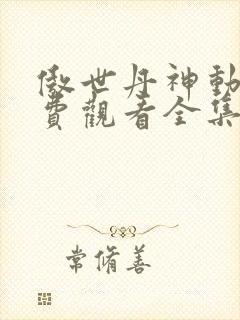 傲世丹神動
費觀看全集
常脩善